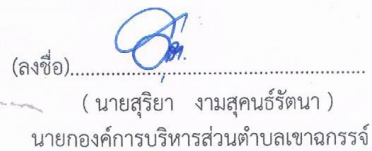 (ลงชื่อ)............................................................
( นายสุริยา งามสุคนธ์รัตนา )
นายกองค์การบริหารส่วนตำบลเขาฉกรรจ์